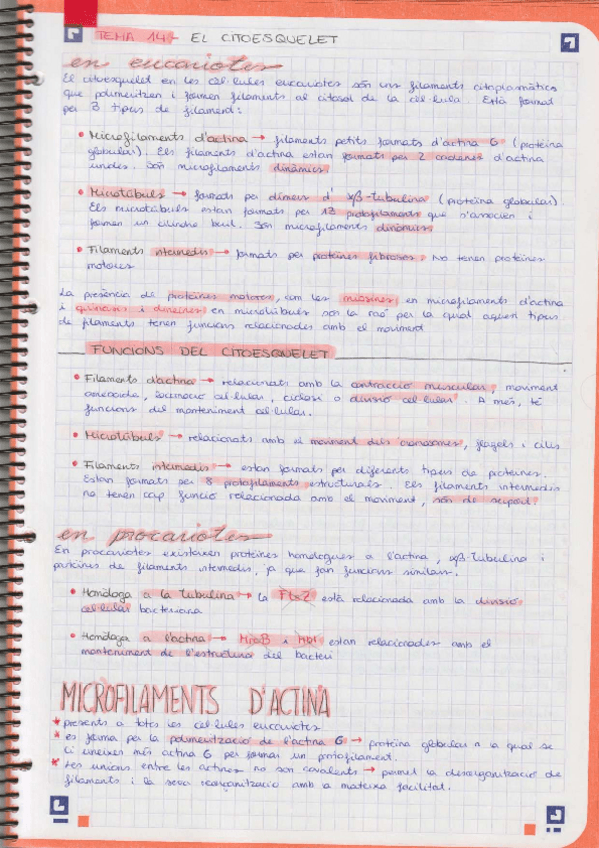 TEMA 14 - EL CITOESQUELET
en eucariotes
El citoesquelet en les cèl·lules eucariotes són uns filaments citoplasmàtics
que polimeritzen i formen filaments al citosol de la cèl·lula. Està format
per 3 tipus de filament:
• Microfilaments d'actina → filaments petits formats d'actina G (proteïna
globular). Els filaments d'actina estan formats per 2 cadenes d'actina
unides. Són microfilaments dinàmics.
• Microtúbuls → formats per dímers d' αβ-tubulina (proteïna globular).
Els microtúbuls estan formats per 13 protofilaments que s'associen i
formen un cilindre buit. Són microfilaments dinàmics.
• Filaments intermedis → formats per proteïnes fibroses. No tenen proteïnes
motores
La presència de proteïnes motores, com les miosines, en microfilaments d'actina
i quinesines i dineïnes en microtúbuls són la raó per la qual aquest tipus
de filaments tenen funcions relacionades amb el moviment
FUNCIONS DEL CITOESQUELET
• Filaments d'actina → relacionats amb la contracció muscular, moviment
locomoció cel·lular, ciclosi o divisió cel·lular. A més, té
funcions del manteniment cel·lular.
• Microtúbuls → relacionats amb el moviment dels cromosomes, flagels i cilis
• Filaments intermedis → estan formats per diferents tipus de proteïnes.
Estan formats per 8 protofilaments estructurals. Els filaments intermedis
no tenen cap funció relacionada amb el moviment, són de suport.
en procariotes
En procariotes existeixen proteïnes homòlogues a l'actina, αβ-tubulina i
proteïnes de filaments intermedis, ja que fan funcions similars.
• Homòloga a la tubulina → la FtsZ està relacionada amb la divisió
cel·lular bacteriana
• Homòloga a l'actina → MreB i Mbl estan relacionades amb el
manteniment de l'estructura del bacteri
MICROFILAMENTS D'ACTINA
* presents a totes les cèl·lules eucariotes
* es forma per la polimerització de l'actina G → proteïna globular a la qual se
li uneixen més actina G per formar un protofilament.
* Les unions entre les actines no són covalents → permet la desorganització de
filaments i la seva reorganització amb la mateixa facilitat.